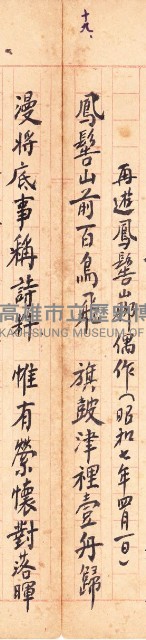 十九、
再遊鳳髻山郎偶作（昭和七年四月一日）
鳳髻山前百鳥飛 旗鼓津裡壹舟歸
漫將底事稱詩料 惟有縈懷對落暉
高雄市立歷史博
KAOHSIUNG MUSEUM OF HIS